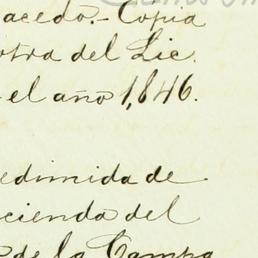 acedo.- Copia
otra del Lic.
el año 1,846.
edimida de
cienda del
de la Campa